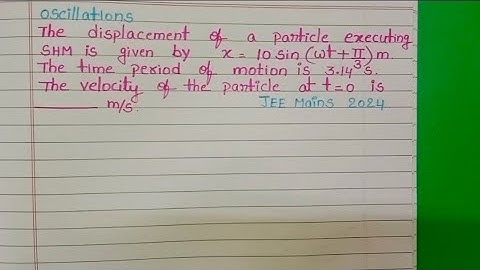 oscillations
The displacement of a particle executing
SHM is given by x = 10 sin (ωt + π/3) m.
The time period of motion is 3.14 s.
The velocity of the particle at t=0 is
______ m/s. JEE Mains 2024